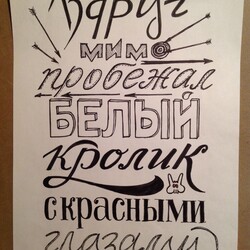 Вдруг
мимо
пробежал
БЕЛЫЙ
кролик
с красными
глазами